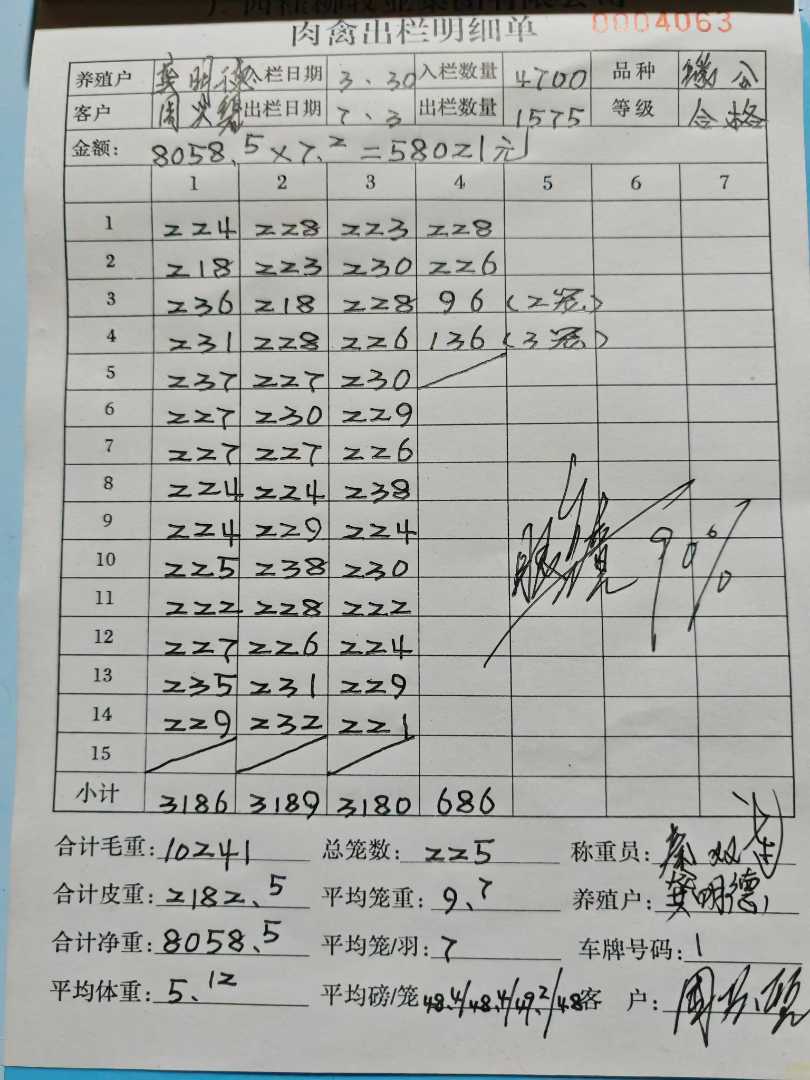 肉禽出栏明细单 0004063
养殖户 龚明德 入栏日期 3、30 入栏数量 4700 品种
客户 出栏日期 7、3 出栏数量 1575 等级 合格
金额: 8058.5×7.2=58021元
1 2 3 4 5 6 7
1 224 228 223 228
2 218 223 230 226
3 236 218 228 96 (2笼)
4 231 228 226 136 (3笼)
5 237 227 230
6 227 230 229
7 227 227 226
8 224 224 238
9 224 229 224
10 225 238 230 90%
11 222 228 222
12 227 226 224
13 235 231 229
14 229 232 221
15
小计 3186 3189 3180 686
合计毛重: 10241 总笼数: 225 称重员:
合计皮重: 2182.5 平均笼重: 9.7 养殖户: 龚明德
合计净重: 8058.5 平均笼/羽: 7 车牌号码: 1
平均体重: 5.12 平均磅/笼 48.4/48.4/49.2/48 客户: